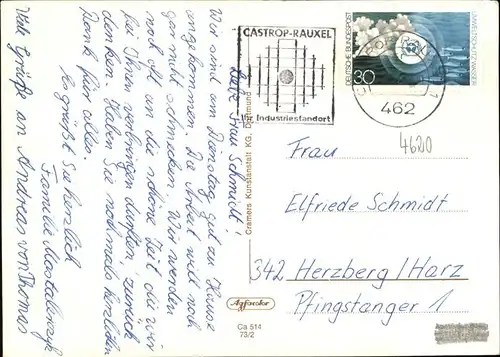 Liebe Frau Schmidt!
Wir sind am Dienstag gut zu Hause
angekommen. Die Arbeit will noch
gar nicht schmecken. Wir werden
noch oft an die schöne Zeit die wir
bei Ihnen verbringen durften, zurück
denken. Haben Sie nochmals herzlichen
Dank für alles.
Es grüßt Sie herzlich
Familie
Viele Grüße an Andreas von Thomas
CASTROP-RAUXEL
Ihr Industriestandort
DEUTSCHE BUNDESPOST
UMWELTSCHUTZ WASSER
30
462
1
4620
Cramers Kunstanstalt KG, Dortmund
Frau
Elfriede Schmidt
342 Herzberg/Harz
Pfingstanger 1
Agfacolor
Ca 514
73/2